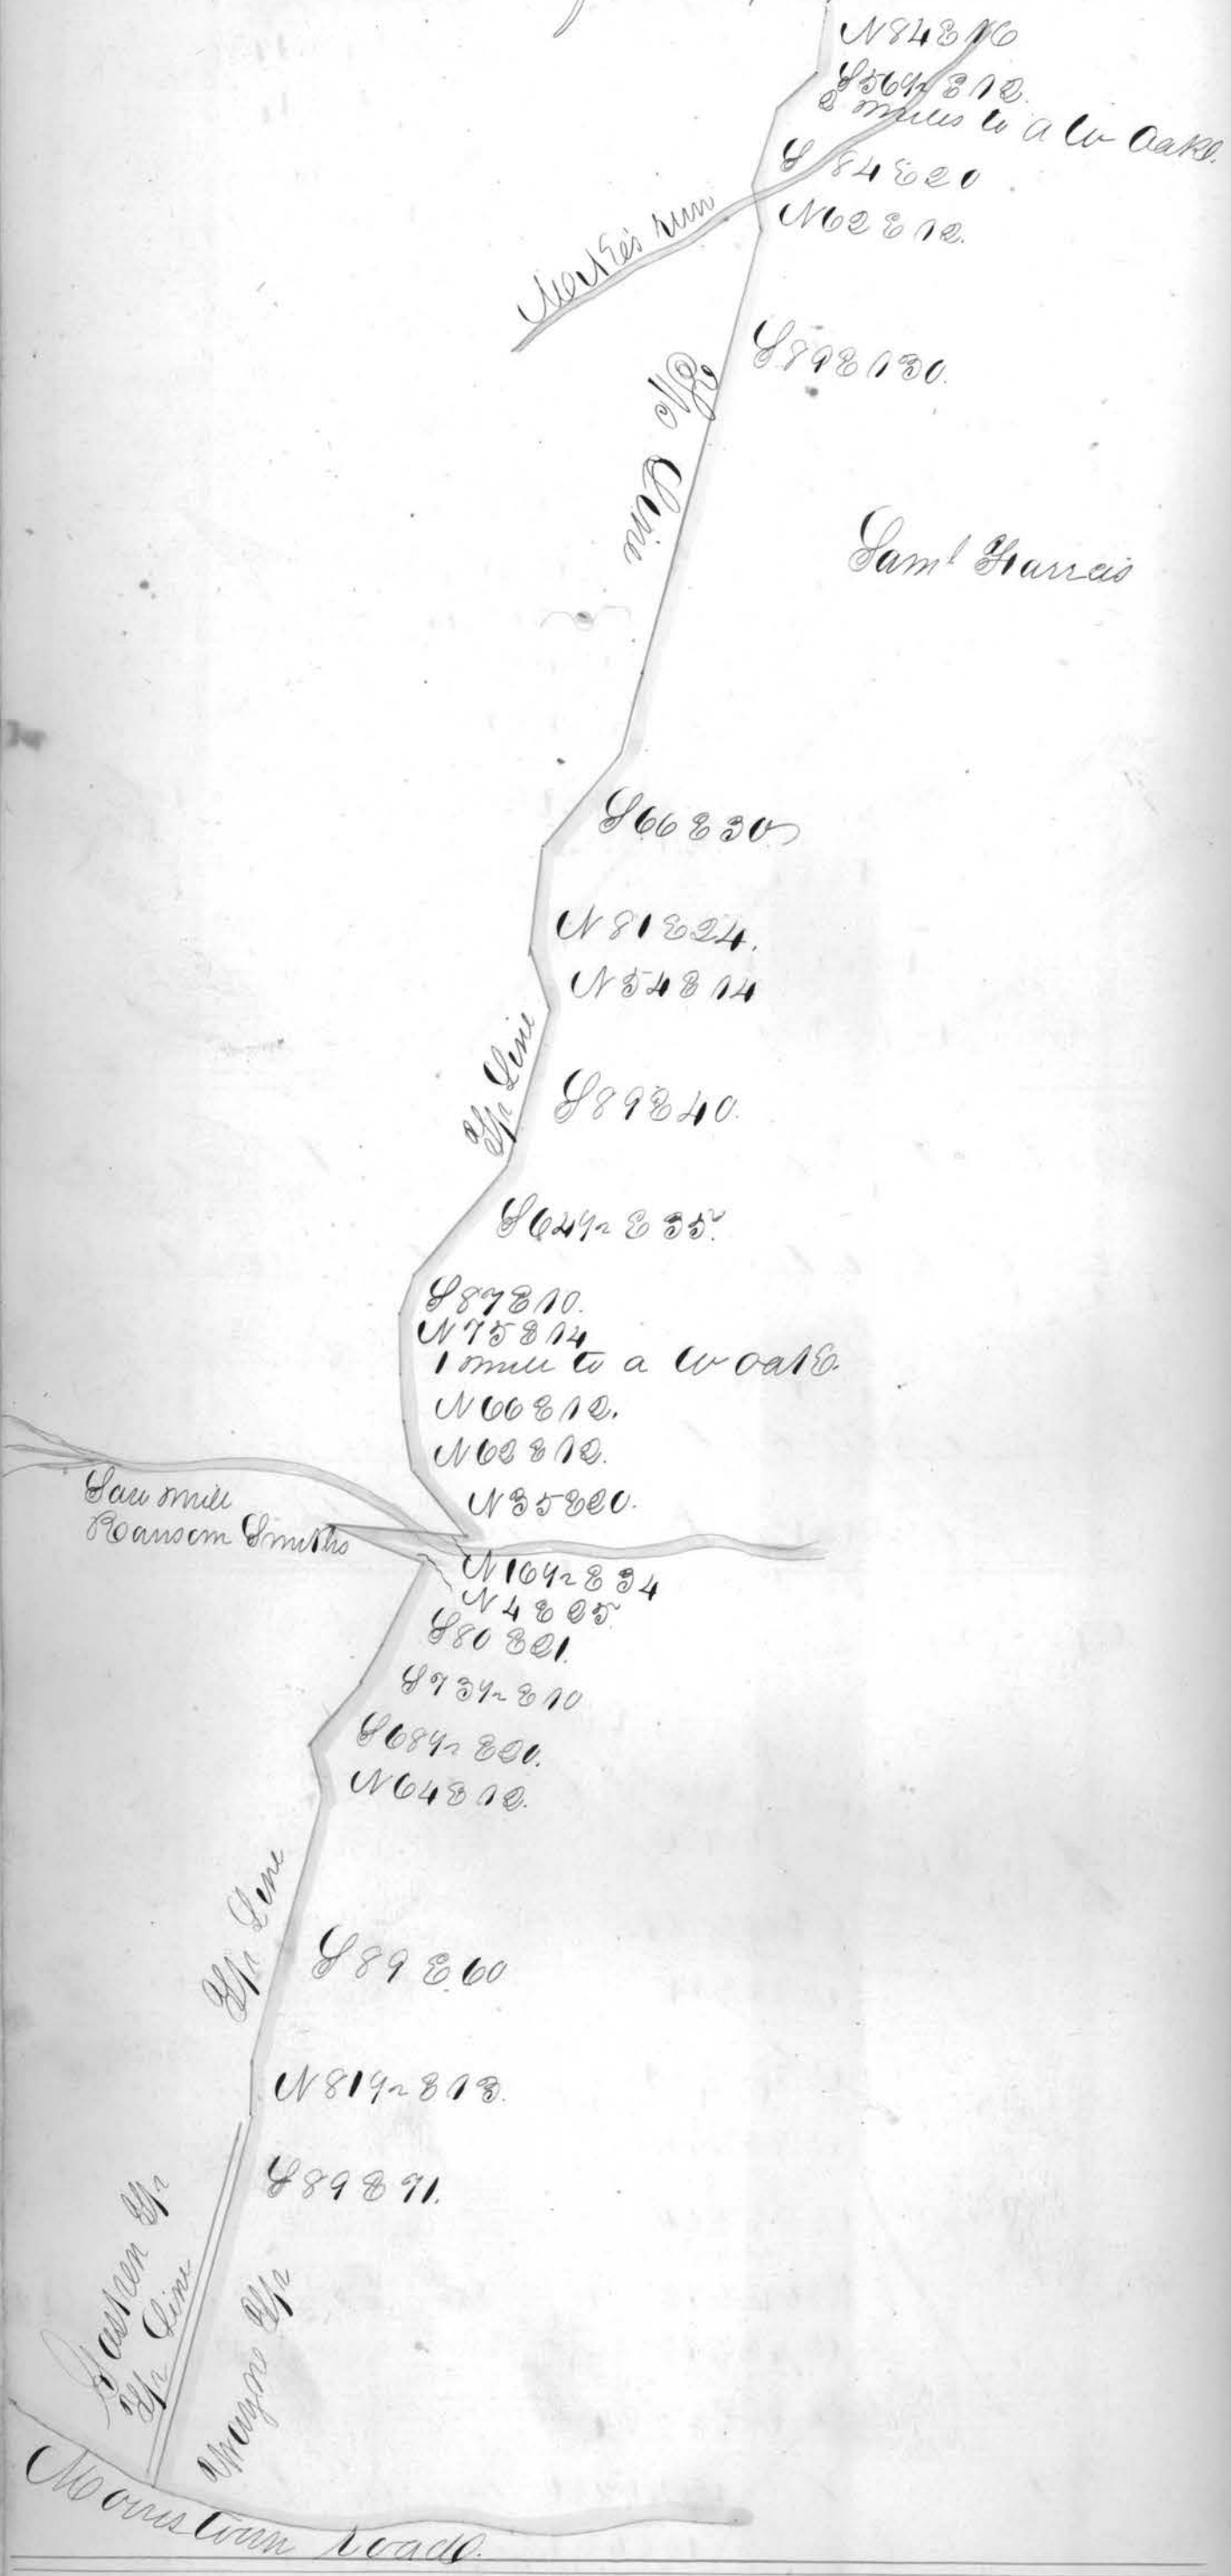 N84E16
S56½E12.
2 miles to a W Oak.
S84E20
N62E12.
run
S89E130.
Tp Line
Saml Harris
S66E30
N81E24.
N54E14
Tp Line
S89E40.
S64½E35.
S87E10.
N75E14
1 mile to a W oak.
N66E12.
N62E12.
N35E20.
Saw mill
Ransom Smiths
N16½E34
N4E25
S80E21.
S73½E10
S68½E20.
N64E12.
Tp Line
S89E60
N81½E13.
S89E71.
Warren Tp
Tp Line
Wayne Tp
Morristown road.